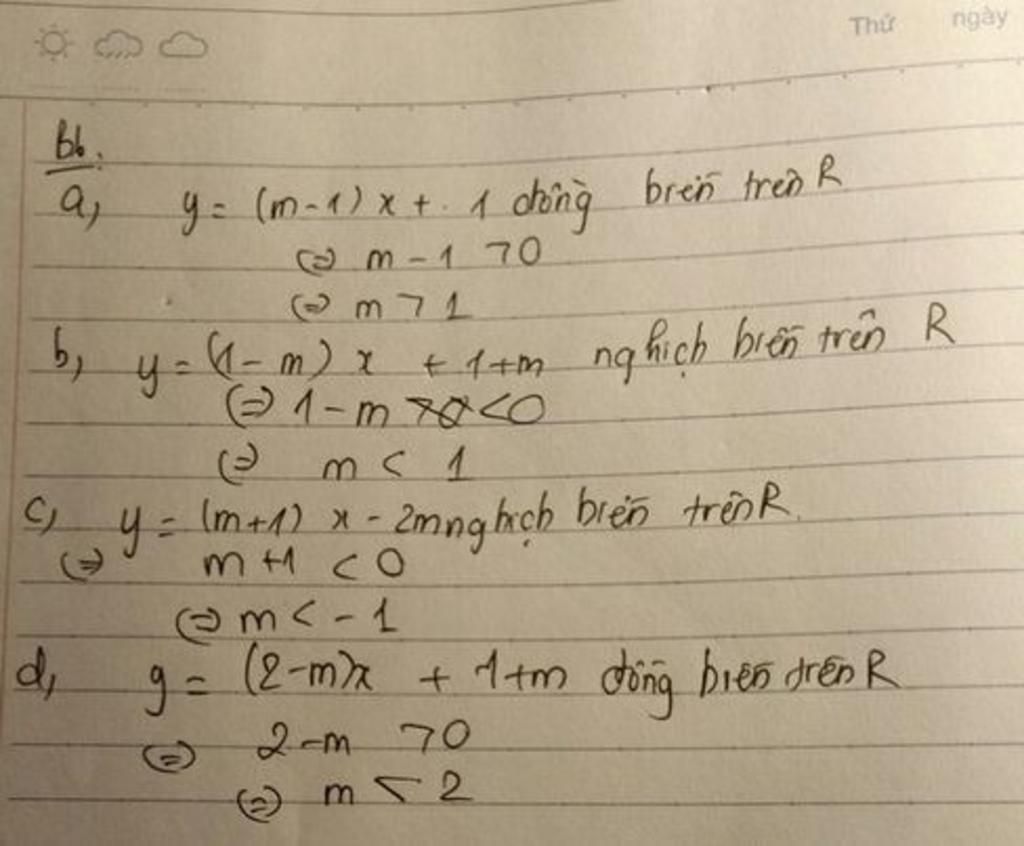 Thứ ngày
B6.
a, y = (m-1) x + 1 đồng biến trên R
⇔ m - 1 > 0
⇔ m > 1
b, y = (1 - m) x + 1+m nghịch biến trên R
⇔ 1 - m >0 <0
⇔ m < 1
c, y = (m+1) x - 2m nghịch biến trên R.
⇔ m +1 < 0
⇔ m < - 1
d, y = (2-m)x + 1+m đồng biến trên R
⇔ 2 -m > 0
⇔ m < 2